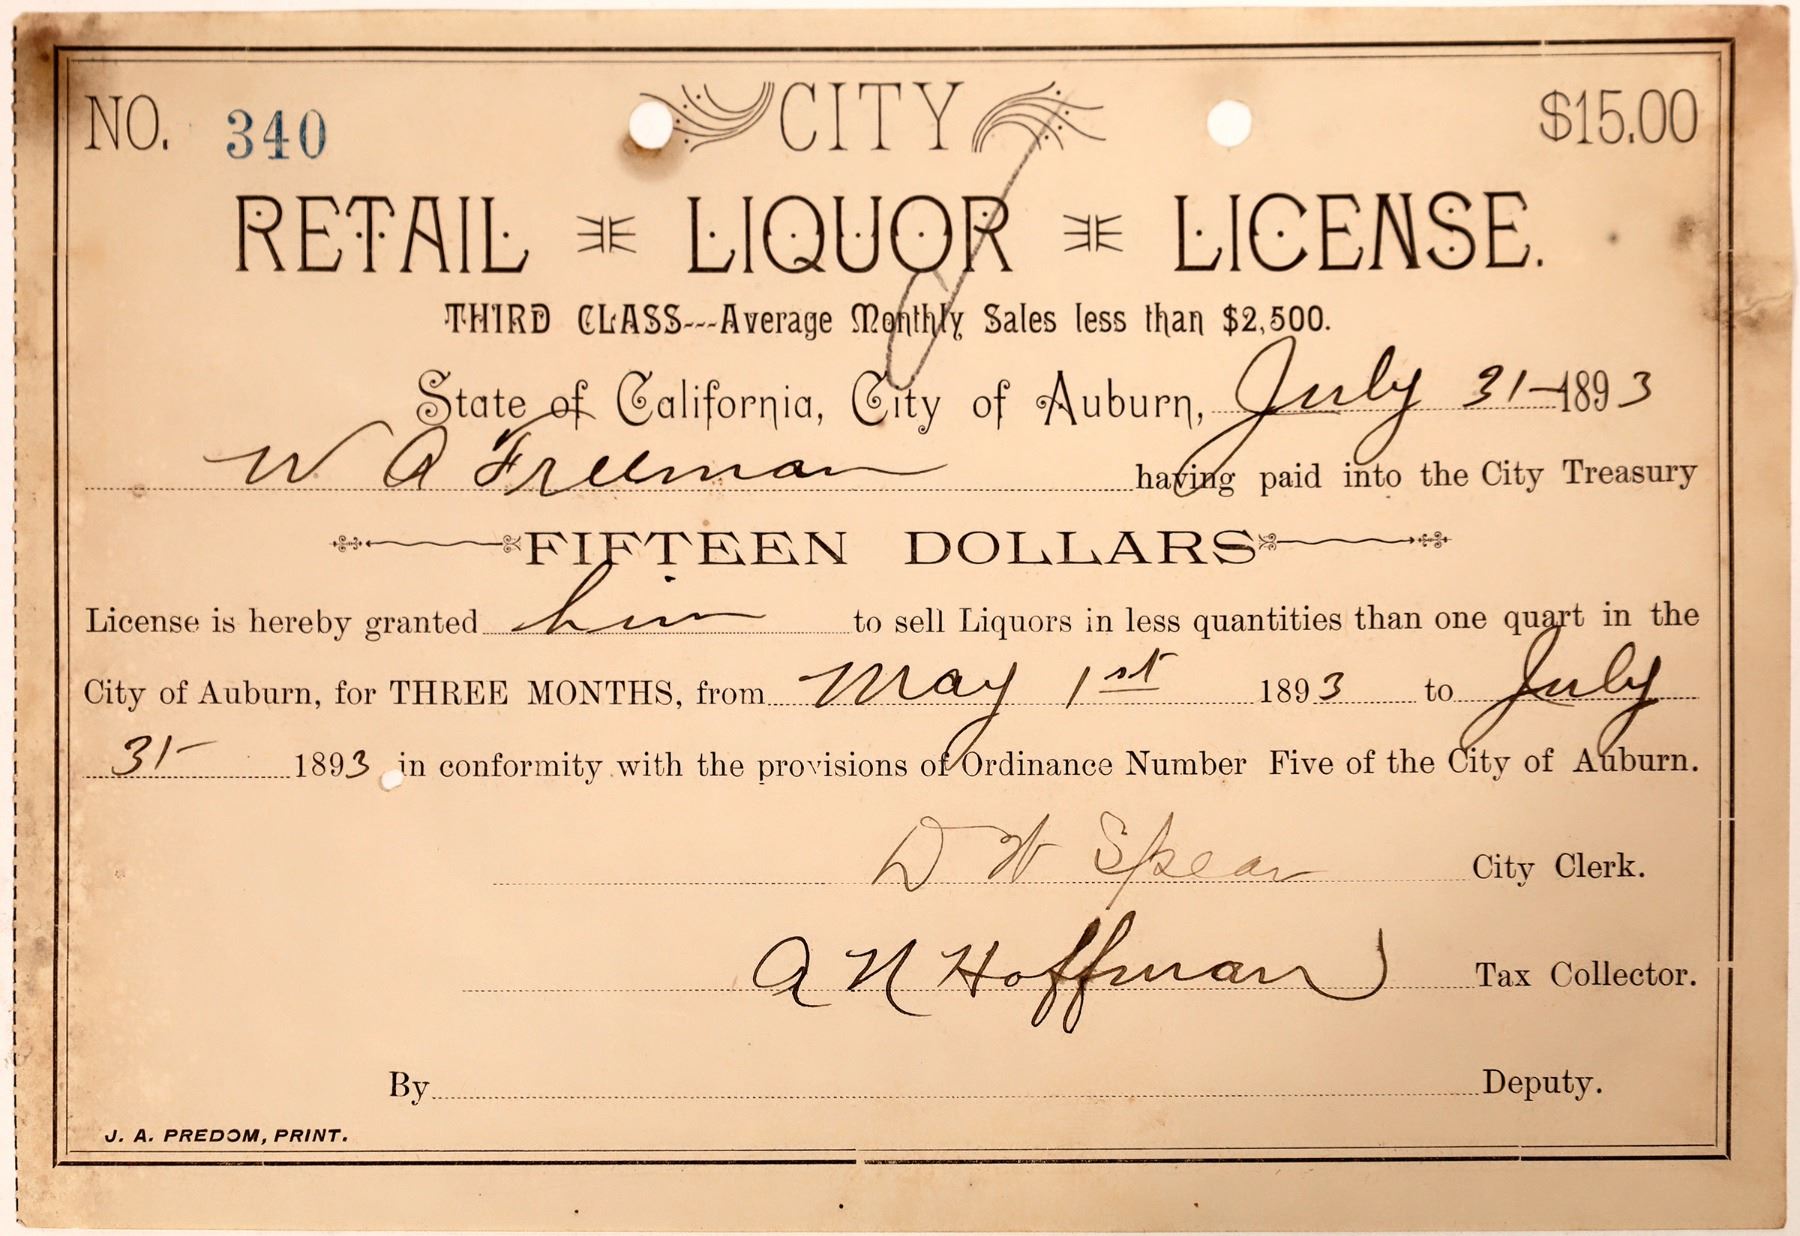 NO. 340 CITY $15.00
RETAIL LIQUOR LICENSE.
THIRD CLASS---Average Monthly Sales less than $2,500.
State of California, City of Auburn, July 31- 1893
W A Freeman having paid into the City Treasury
FIFTEEN DOLLARS
License is hereby granted him to sell Liquors in less quantities than one quart in the
City of Auburn, for THREE MONTHS, from May 1st 1893 to July
31- 1893 in conformity with the provisions of Ordinance Number Five of the City of Auburn.
D W Spear City Clerk.
A N Hoffman Tax Collector.
By Deputy.
J. A. PREDOM, PRINT.